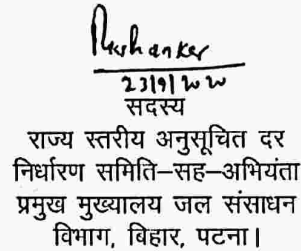 23/9/2020
सदस्य
राज्य स्तरीय अनुसूचित दर
निर्धारण समिति–सह–अभियंता
प्रमुख मुख्यालय जल संसाधन
विभाग, बिहार, पटना।